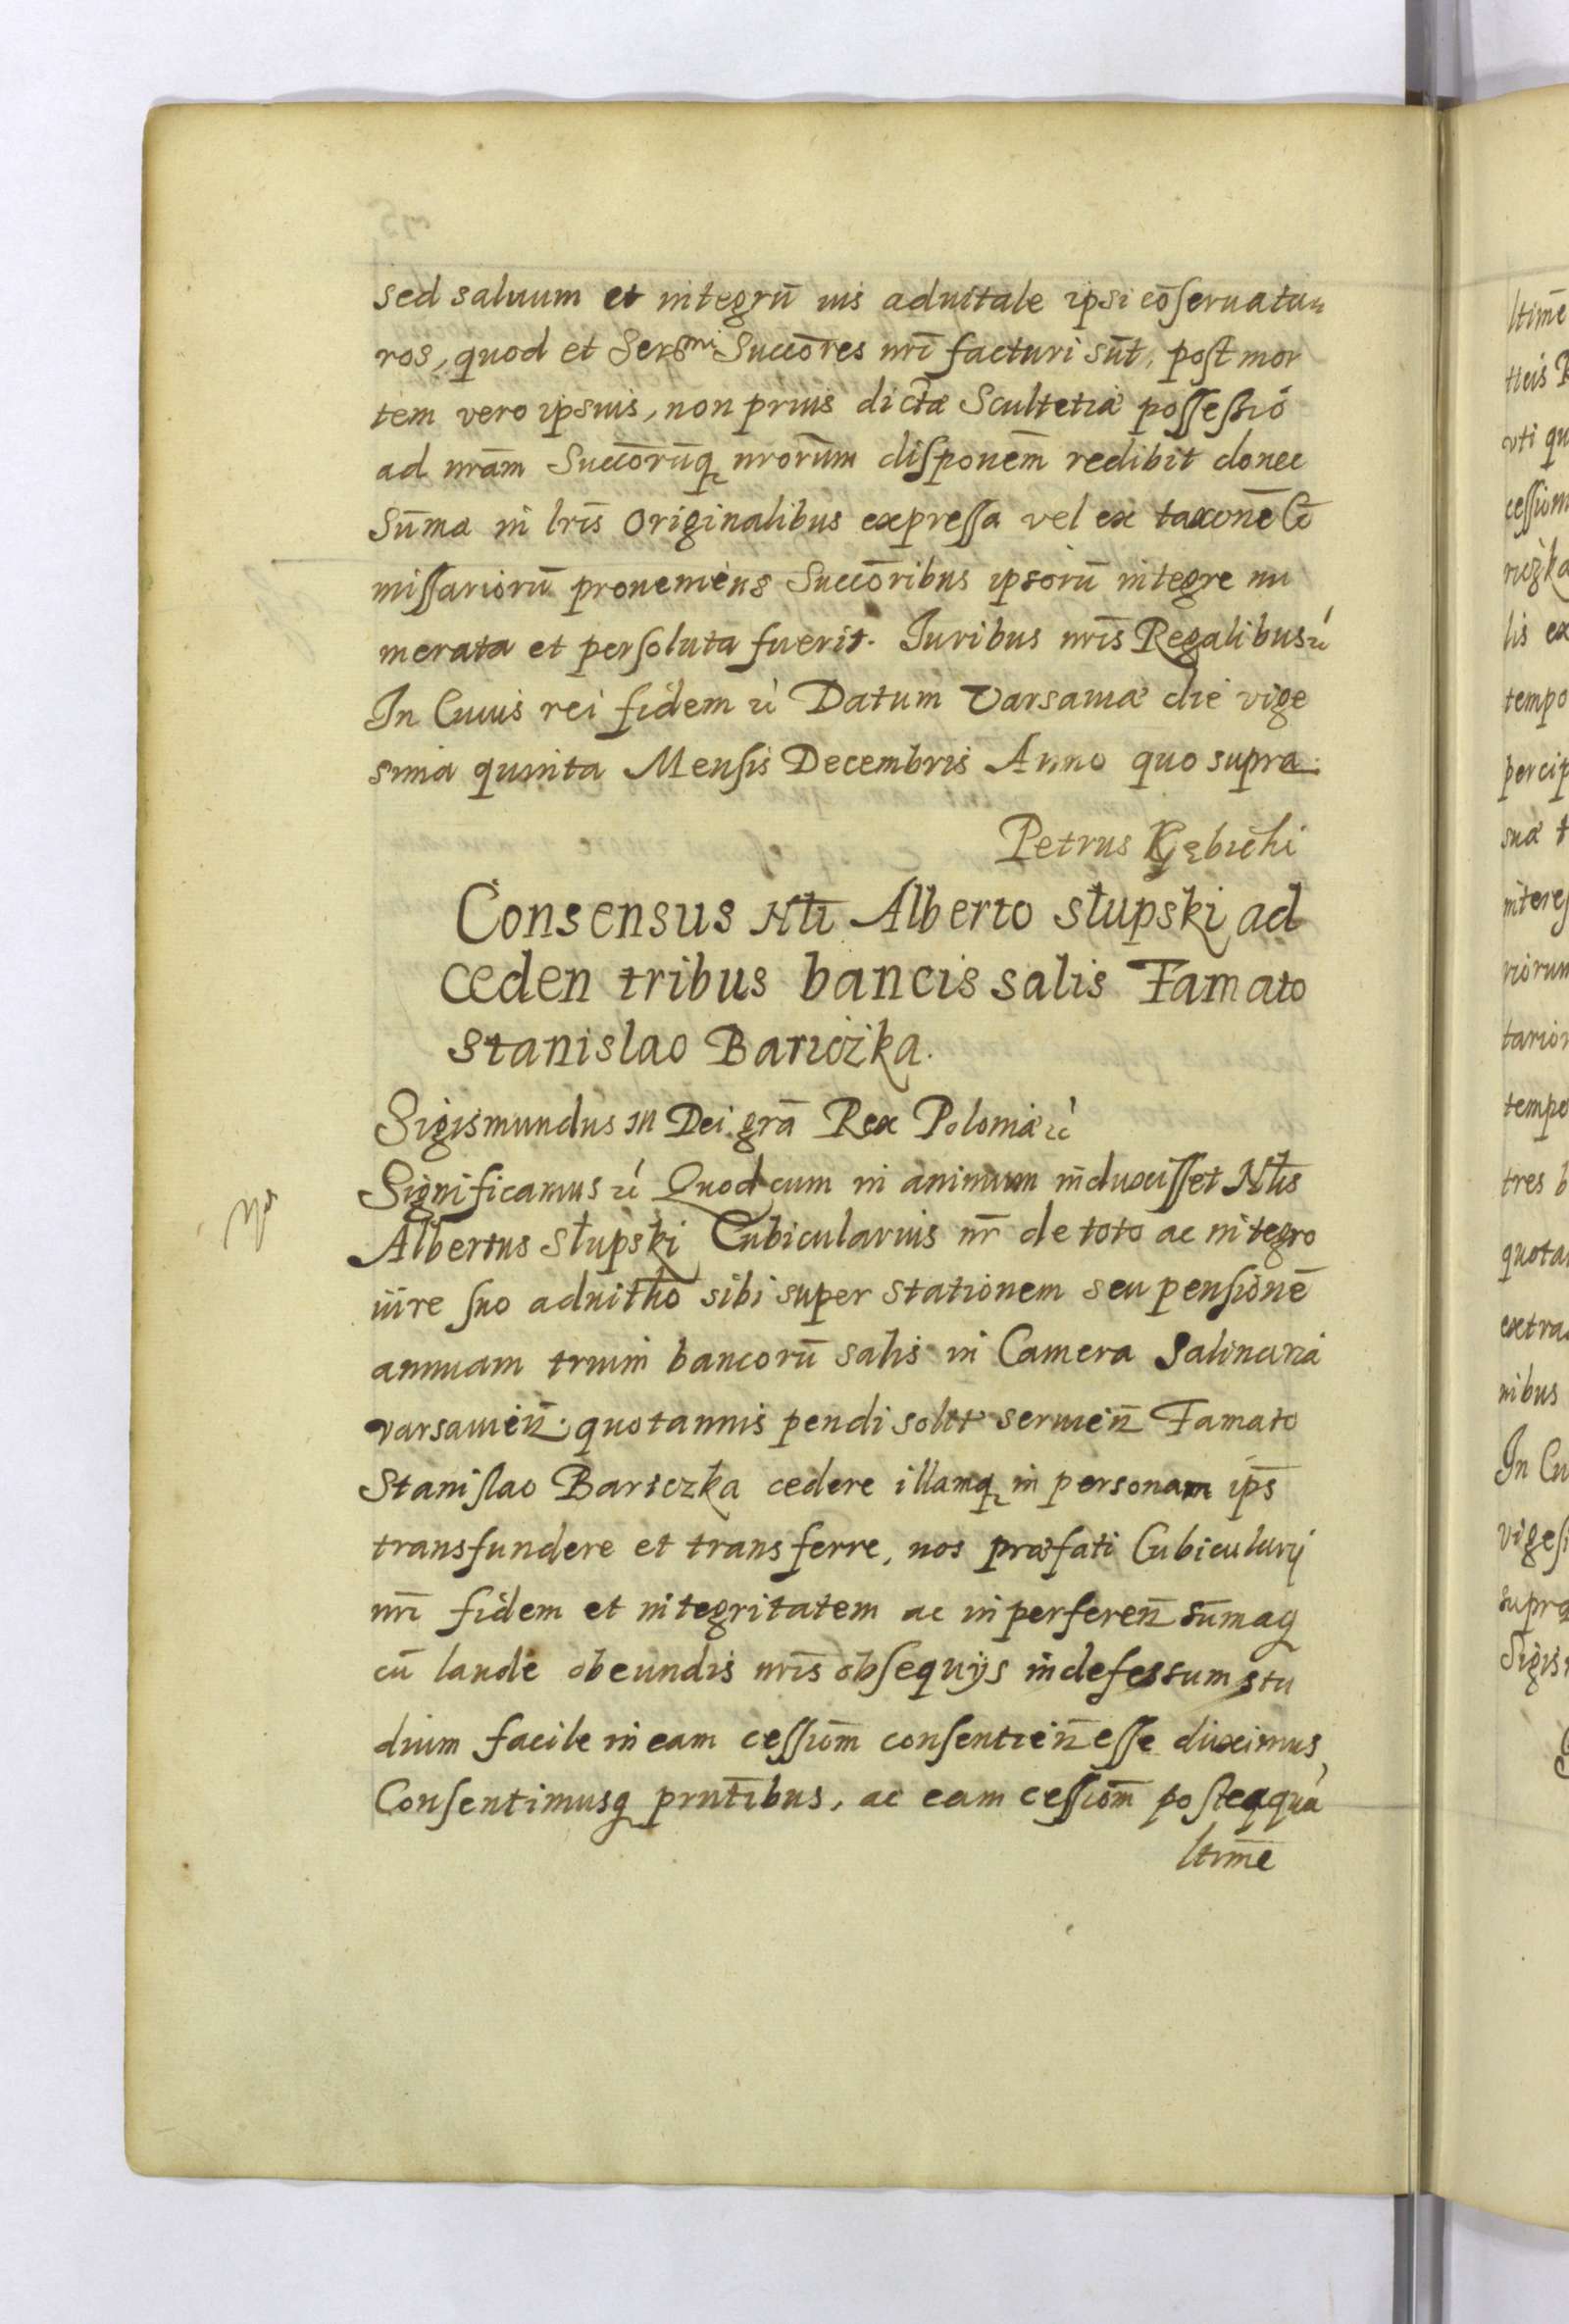 sed saluum et integrū ius aduitale ipsi cōseruatu
ros, quod et Sersmi Succōres nr̄i facturi sūt, post mor
tem vero ipsius, non prius dictæ Scultetiæ possessio
ad nr̄am Succōrūq nrōrum disponēm redibit donec
Sūma in lrīs Originalibus expressa vel ex taxonē Cō
missariorū proueniens Succōribus ipsorū integre nu
merata et persoluta fuerit. Iuribus nrīs Regalibus ꝛc
In Cuius rei fidem ꝛc Datum Varsauiæ die vige
sima quinta Mensis Decembris Anno quo supra.
Petrus Gębichi
Consensus Nłi Alberto słupski ad
ceden tribus bancis salis Famato
Stanislao Bariczka.
Sigismundus III Dei grā Rex Poloniæ ꝛc
Significamus ꝛc Quod cum in animum induxisset Nłis
Albertus Słupski Cubicularius nr̄ de toto ac integro
iure suo aduitłio sibi super stationem seu pensionē
annuam trium bancorū salis in Camera Salinaria
varsauien̄. quotannis pendi solit seruien̄ Famato
Stanislao Bariczka cedere illamq in personam ips̄
transfundere et transferre, nos præfati Cubicularij
nr̄i fidem et integritatem ac in perferen̄ sūmaq
cū laude obeundis nrīs obsequijs indefessum stu
dium facile in eam cessiōm consentien̄ esse duximus,
Consentimusq prntībus, ac eam cessiōm posteaquā
ltīme